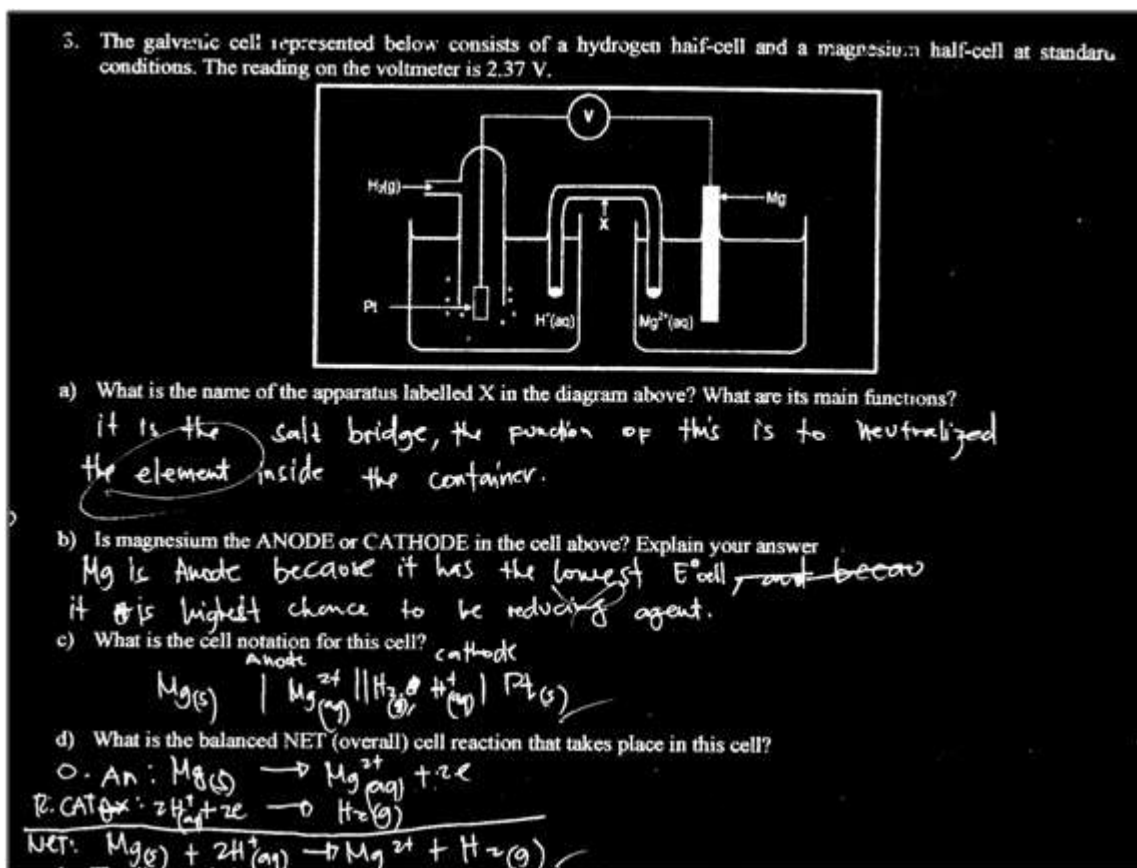 3. The galvanic cell represented below consists of a hydrogen half-cell and a magnesium half-cell at standard
conditions. The reading on the voltmeter is 2.37 V.
V
H₂(g)
Mg
X
Pt
H⁺(aq)
Mg²⁺(aq)
a) What is the name of the apparatus labelled X in the diagram above? What are its main functions?
it is the salt bridge, the function of this is to neutralized
the element inside the container.
b) Is magnesium the ANODE or CATHODE in the cell above? Explain your answer
Mg is Anode because it has the lowest E°cell, and becau
it is highest chance to be reducing agent.
c) What is the cell notation for this cell?
Anode cathode
Mg(s) | Mg²⁺(aq) || H₂(g), H⁺(aq) | Pt(s)
d) What is the balanced NET (overall) cell reaction that takes place in this cell?
O. An: Mg(s) → Mg²⁺(aq) + 2e
R. CAT : 2H⁺(aq) + 2e → H₂(g)
NET: Mg(s) + 2H⁺(aq) → Mg²⁺ + H₂(g)